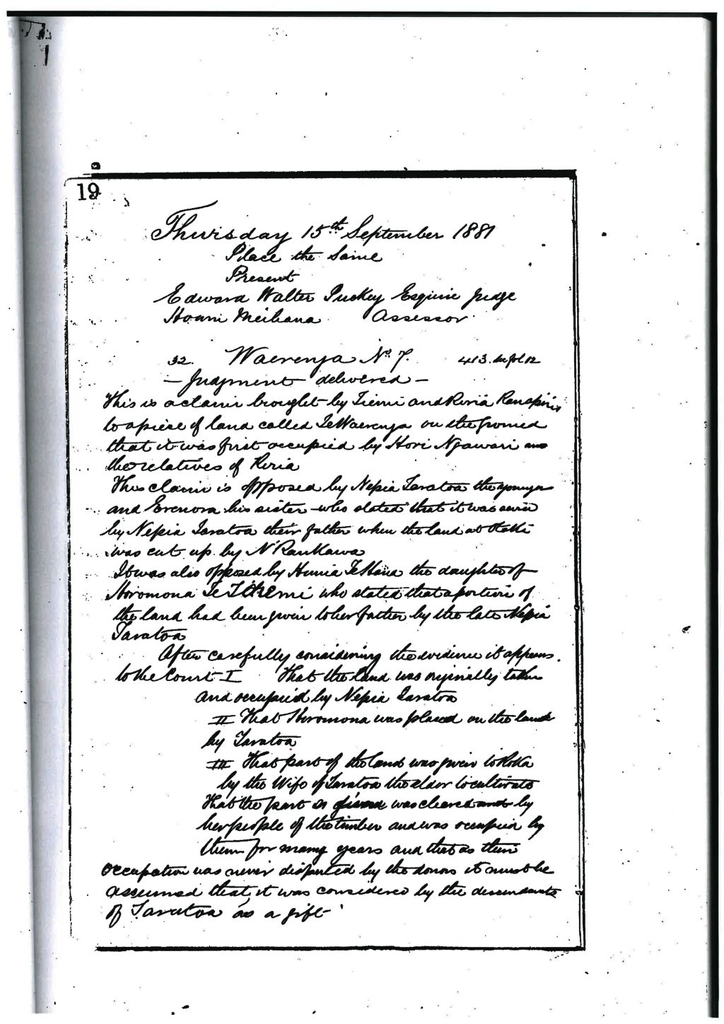 19
Thursday 15th September 1881
Place the Same
Present
Edward Walter Puckey Esquire Judge
Hoani Meihana Assessor
32. Waerenga No 7. 413.
— Judgment delivered —
This is a claim brought by Tiemi and Riria Ranapiri
to a piece of land called Te Waerenga on the ground
that it was first occupied by Hori Ngawari and
the relatives of Riria
This claim is opposed by Nepia Taratoa the younger
and Erenora his sister who stated that it was
by Nepia Taratoa their father when the land at
was cut up by N Raukawa
It was also opposed by Hunia Te Hana the daughter of
Horomona Te who stated that a portion of
the land had been given to her father by the late Nepia
Taratoa
After carefully considering the evidence it appears
to the Court I That the land was originally taken
and occupied by Nepia Taratoa
II That Horomona was placed on the land
by Taratoa
III That part of the land was given to
by the Wife of Taratoa the elder to cultivate
That the part was cleared by
her people of the timber and was occupied by
them for many years and that as their
occupation was never disputed by the donors it must be
assumed that it was considered by the descendants
of Taratoa as a gift